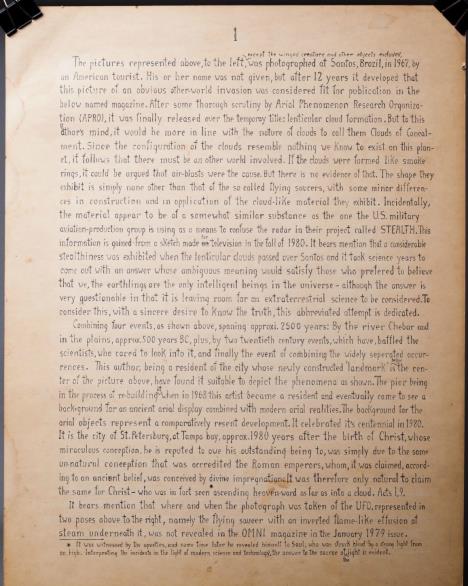 1
except the winged creature and other objects included,
The pictures represented above, to the left, was photographed at Santos, Brazil, in 1967, by
an American tourist. His or her name was not given, but after 12 years it developed that
this picture of an obvious other-world invasion was considered fit for publication in the
below named magazine. After some thorough scrutiny by Arial Phenomenon Research Organiza-
tion (APRO), it was finally released over the temporary title: lenticular cloud formation. But to this
author's mind, it would be more in line with the nature of clouds to call them Clouds of Conceal-
ment. Since the configuration of the clouds resemble nothing we know to exist on this plan-
et, it follows that there must be an other world involved. If the clouds were formed like smoke
rings, it could be argued that air-blasts were the cause. But there is no evidence of that. The shape they
exhibit is simply none other than that of the so called flying saucers, with some minor differen-
ces in construction and in application of the cloud-like material they exhibit. Incidentally,
the material appear to be of a somewhat similar substance as the one the U.S. military
aviation-production group is using as a means to confuse the radar in their project called STEALTH. This
information is gained from a sketch made for television in the fall of 1980. It bears mention that a considerable
stealthiness was exhibited when the lenticular clouds passed over Santos and it took science years to
come out with an answer whose ambiguous meaning would satisfy those who preferred to believe
that we, the earthlings are the only intelligent beings in the universe - although the answer is
very questionable in that it is leaving room for an extraterrestrial science to be considered. To
consider this, with a sincere desire to know the truth, this abbreviated attempt is dedicated.
Combining four events, as shown above, spanning approxi. 2500 years: By the river Chebar and
in the plains, approxi. 500 years BC, plus, by two twentieth century events, which have, baffled the
scientists, who cared to look into it, and finally the event of combining the widely seperated occur-
rences. This author, being a resident of the city whose newly constructed "landmark" is the cen-
ter of the picture above, have found it suitable to depict the phenomena as shown. The pier being
in the process of re-building when in 1968 this artist became a resident and eventually came to see a
background for an ancient arial display combined with modern arial realities. The background for the
arial objects represent a comparatively resent development. It celebrated its centennial in 1980.
It is the city of St. Petersburg, at Tampa bay, approxi. 1980 years after the birth of Christ, whose
miraculous conception, he is reputed to owe his outstanding being to, was simply due to the same
un-natural conception that was accredited the Roman emperors, whom, it was claimed, accord-
ing to an ancient belief, was conceived by divine impregnation. It was therefore only natural to claim
the same for Christ - who was in fact seen ascending heaven-ward as far as into a cloud. Acts 1,9.
It bears mention that where and when the photograph was taken of the UFO, represented in
two poses above to the right, namely the flying saucer with an inverted flame-like effusion of
steam underneath it, was not revealed in the OMNI magazine in the January 1979 issue.
* It was witnessed by the apostles, and some time later he revealed himself to Saul, who was struck blind by a strong light from
on high. Interpreting the incidents in the light of modern science and technology, the answer to the source of the light is evident.